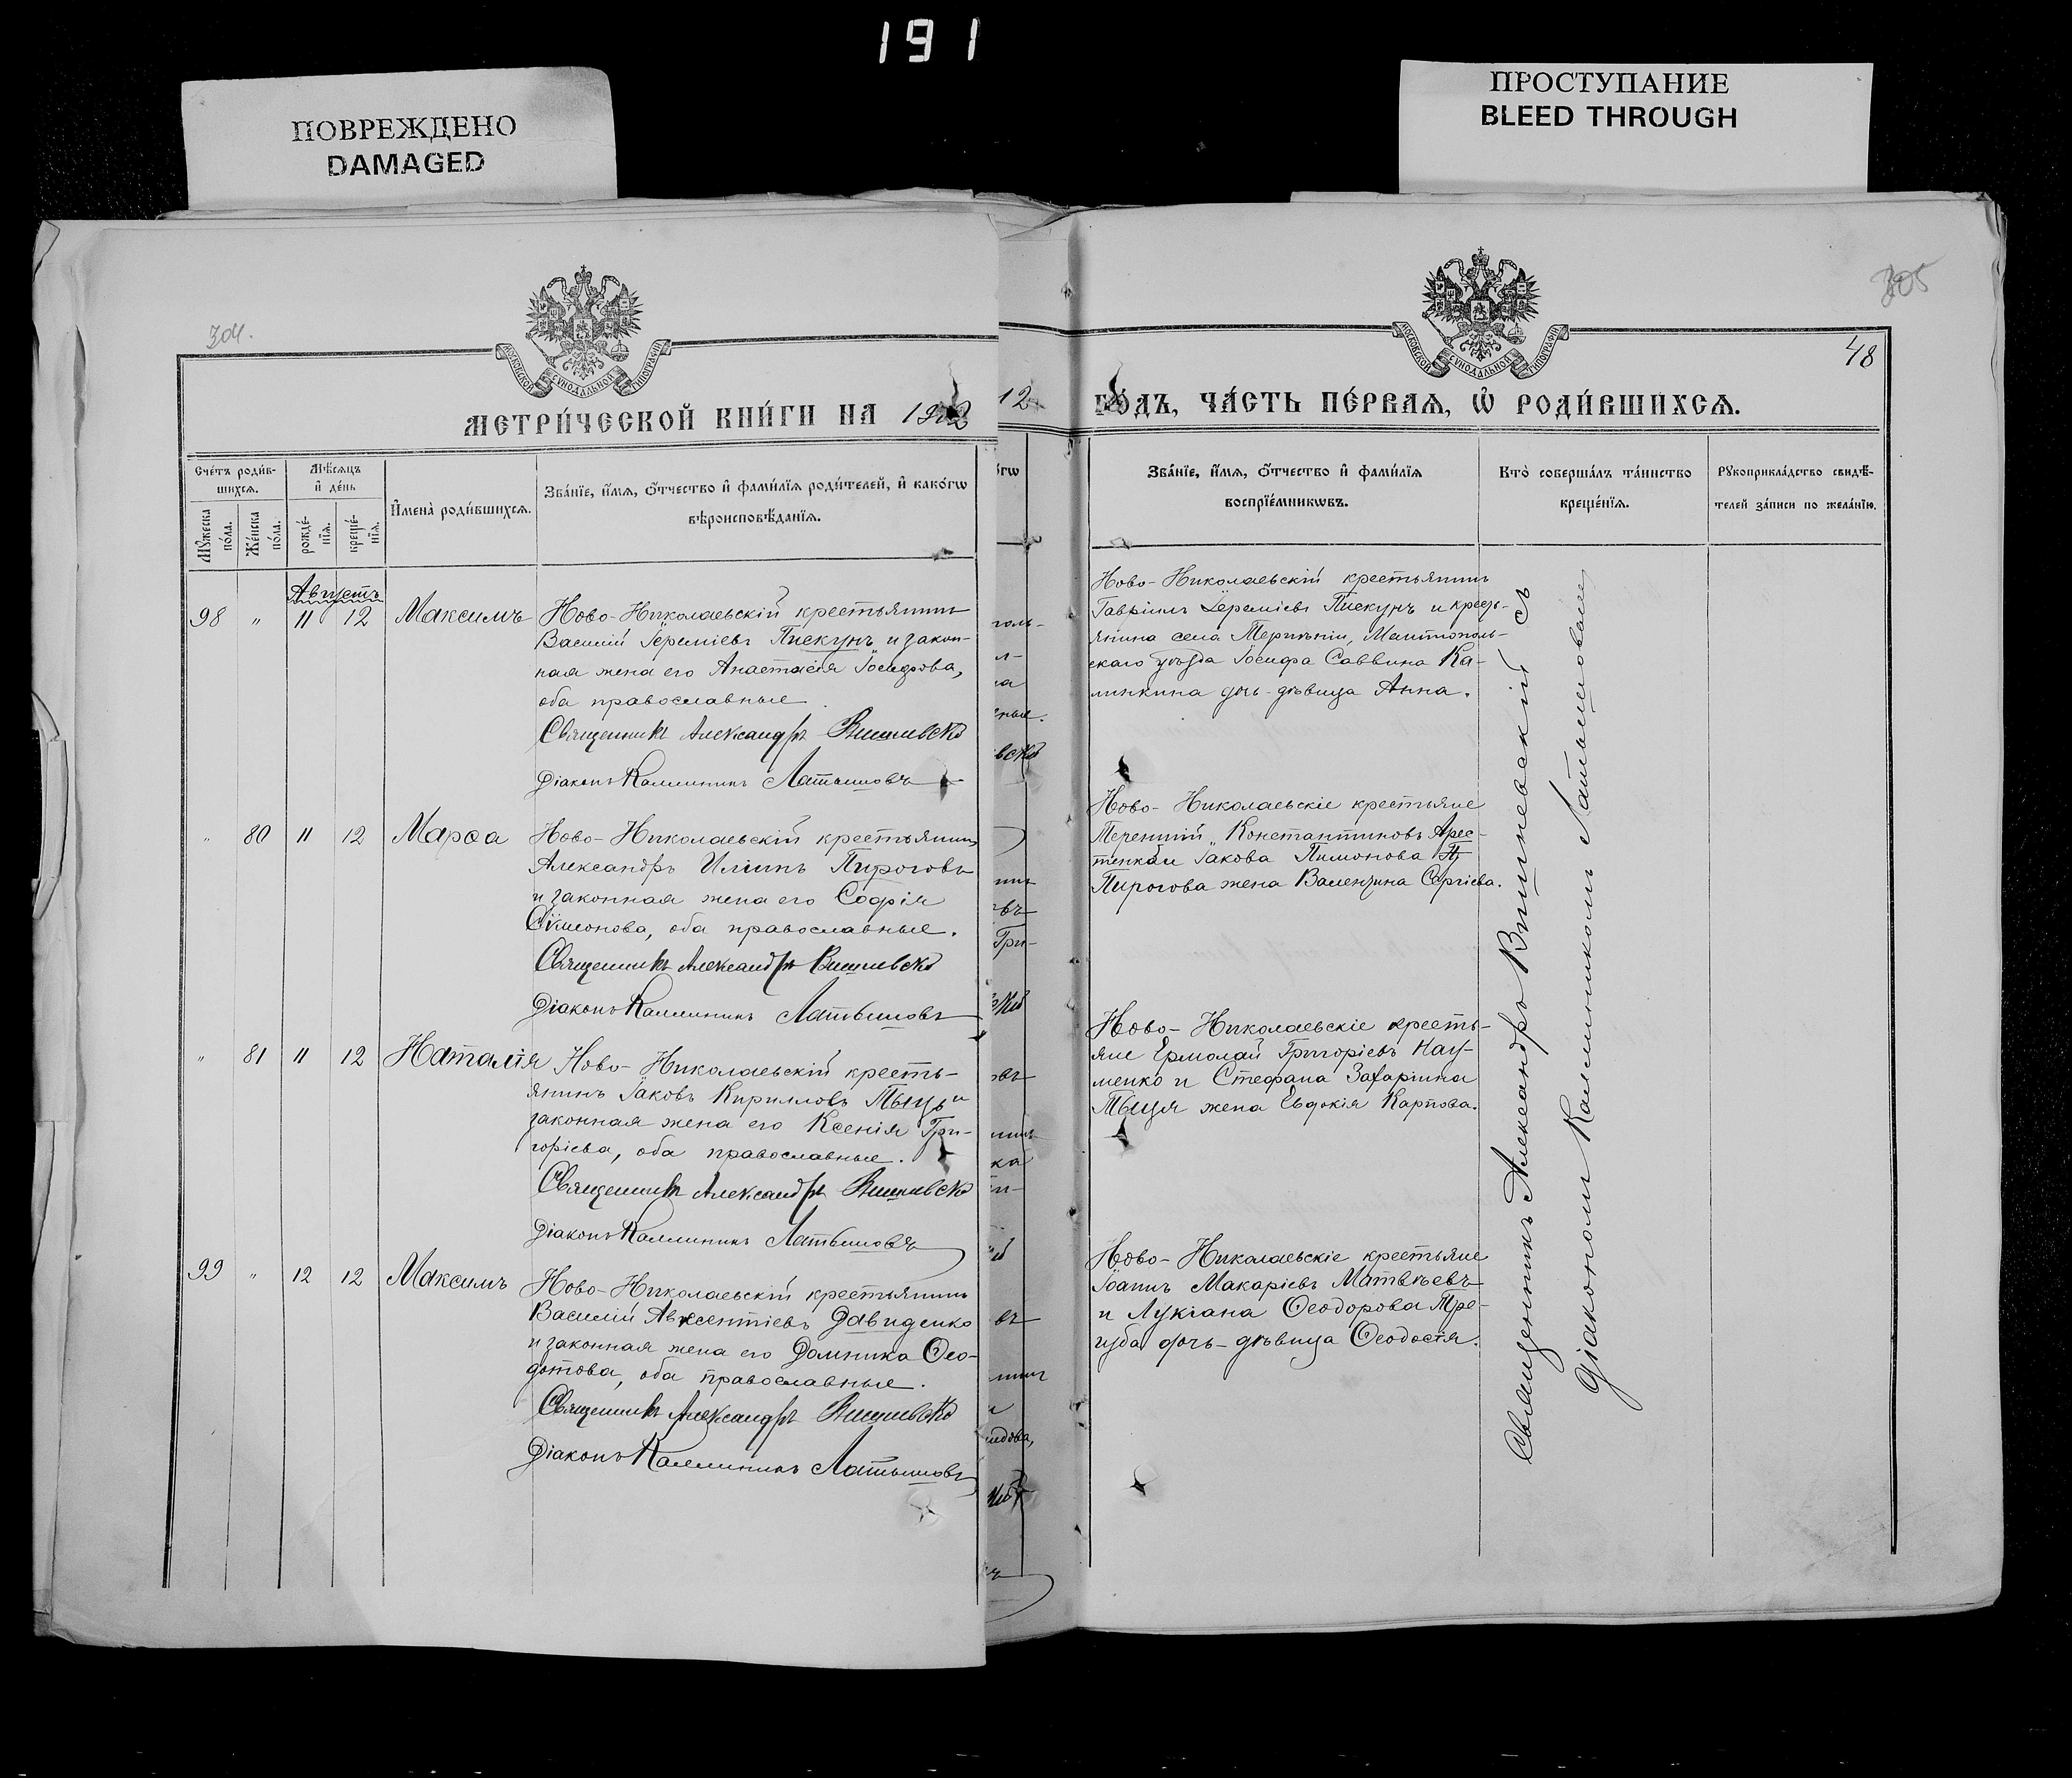 191
ПОВРЕЖДЕНО
DAMAGED
ПРОСТУПАНИЕ
BLEED THROUGH
304.
МОСКОВСКОЙ СѴНОДАЛЬНОЙ ТИПОГРАФІИ
МЕТРИ́ЧЕСКОЙ КНИ́ГИ НА 1912
Счéтъ роди́в-
шихсѧ.
Мꙋ́жеска
по́ла.
Же́нска
по́ла.
Мѣ́сѧцъ
и҆ де́нь
рожде́-
нїѧ.
креще́-
нїѧ.
И҆мена̀ роди́вшихсѧ.
Зва́нїе, и҆́мѧ, ѻ҆́тчество и҆ фами́лїѧ роди́телей, и҆ како́гѡ
вѣроисповѣ́данїѧ.
Августъ
98 " 11 12 Максимъ Ново-Николаевскій крестьянинъ
Василій Іереміевъ Пискунъ и закон-
ная жена его Анастасія Іосифова,
оба православные
Священникъ Александръ Вишневскій
Діаконъ Каллиникъ Латышовъ
" 80 11 12 Марѳа Ново-Николаевскій крестьянинъ
Александръ Иліинъ Пироговъ
и законная жена его Софія
Сѷмеонова, оба православные.
Священникъ Александръ Вишневскій
Діаконъ Каллиникъ Латышовъ
" 81 11 12 Наталія Ново-Николаевскій кресть-
янинъ Іаковъ Кирилловъ Тыць и
законная жена его Ксенія Гри-
горіева, оба православные.
Священникъ Александръ Вишневскій
Діаконъ Каллиникъ Латышовъ
99 " 12 12 Максимъ Ново-Николаевскій крестьянинъ
Василій Авксентіевъ Давиденко
и законная жена его Домника Ѳео-
дотова, оба православные.
Священникъ Александръ Вишневскій
Діаконъ Каллиникъ Латышовъ
305
48
МОСКОВСКОЙ СѴНОДАЛЬНОЙ ТИПОГРАФІИ
12 ГО́ДЪ, ЧА́СТЬ ПЕ́РВАѦ, Ѡ҆ РОДИ́ВШИХСѦ.
Зва́нїе, и҆́мѧ, ѻ҆́тчество и҆ фами́лїѧ
воспрїе́мникѡвъ.
Кто̀ соверша́лъ та́инство
креще́нїѧ.
Рꙋкоприкла́дство свидѣ́-
телей за́писи по жела́нїю.
Ново-Николаевскій крестьянинъ
Гавріилъ Іереміевъ Пискунъ и кресть-
янина села Терпѣніи, Мелитополь-
скаго уѣзда Іосифа Саввина Ка-
линкина дочь-дѣвица Анна.
Ново-Николаевскіе крестьяне
Терентій Константиновъ Арес-
тенко и Іакова Пимонова П
Пирогова жена Валентина Сергіева.
Ново-Николаевскіе кресть-
яне Ермолай Григоріевъ Нау-
менко и Стефана Захаріина
Тыця жена Евдокія Карпова.
Ново-Николаевскіе крестьяне
Іоаннъ Макаріевъ Матвѣевъ
и Лукіана Ѳеодорова Тре-
губа дочь-дѣвица Ѳеодосія.
Священникъ Александръ Вишневскій съ
діакономъ Каллиникомъ Латышовымъ